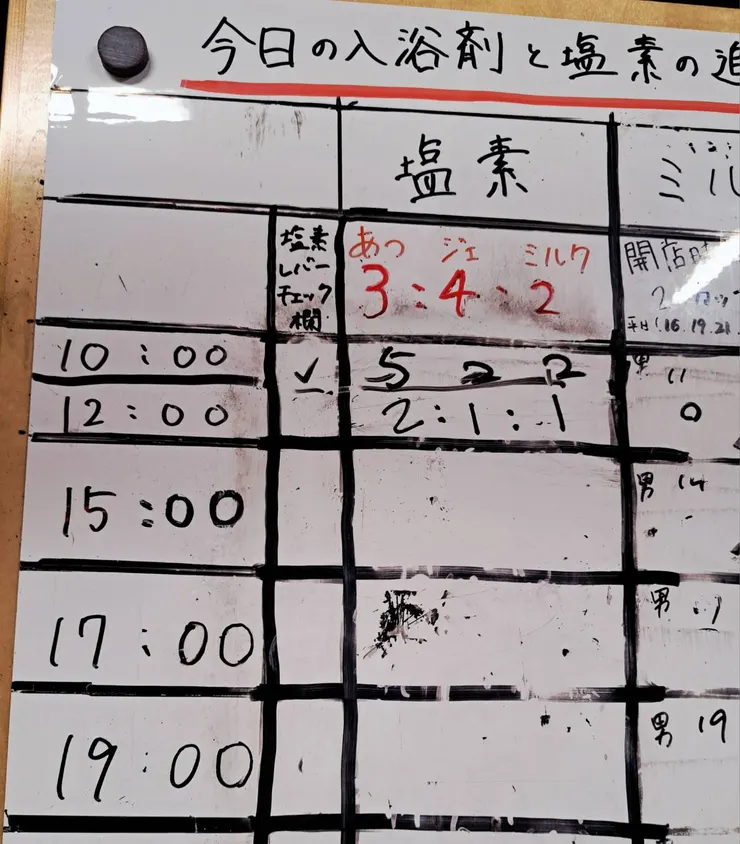 今日の入浴剤と塩素の追
塩素
ミル
塩素
レバー
チェック
欄
あつ ジェ ミルク
3:4:2
開店時
2
10:00 ✓ 5 2 2
男 11
12:00 2:1:1
0
15:00
男 14
17:00
男
19:00
男 19